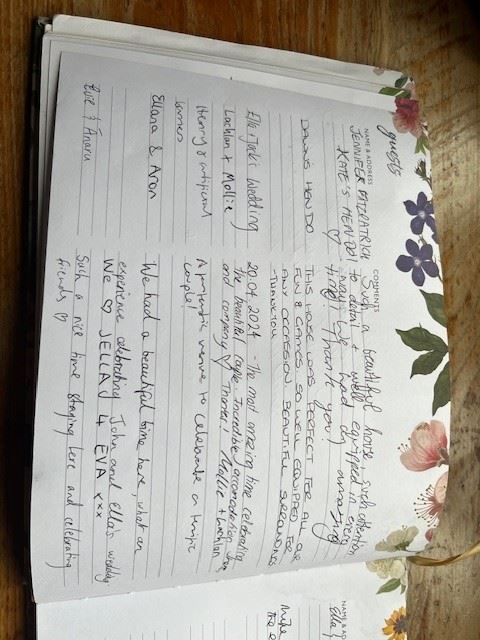 guests
NAME & ADDRESS
COMMENTS
JENNIFER FITZPATRICK
KATE'S HEN DO! ♡
Such a beautiful home, such attention
to detail + well equipped in every
way. We had an amazing
time! Thank you!
DAWN'S HEN DO
THIS HOUSE WAS PERFECT FOR ALL OUR
FUN & GAMES. SO WELL EQUIPPED FOR
ANY OCCASION. BEAUTIFUL SURROUNDINGS
- THANKYOU
Ella & Jack's Wedding
Lachlan + Mollie
20.04.2024 - The most amazing time celebrating
the beautiful couple. Incredible accomodation
and company ♡ Thanks! Mollie + Lachlan
Henry & artificial
A fantastic venue to celebrate a terrific
couple!
Eliana & Aron
We had a beautiful time here, what an
experience celebrating John and Ella's wedding
We ♡ JELLAJ 4 EVA xxx
Evie & Anaru
Such a nice time staying here and celebrating
friends ♡
NAME &
Ella